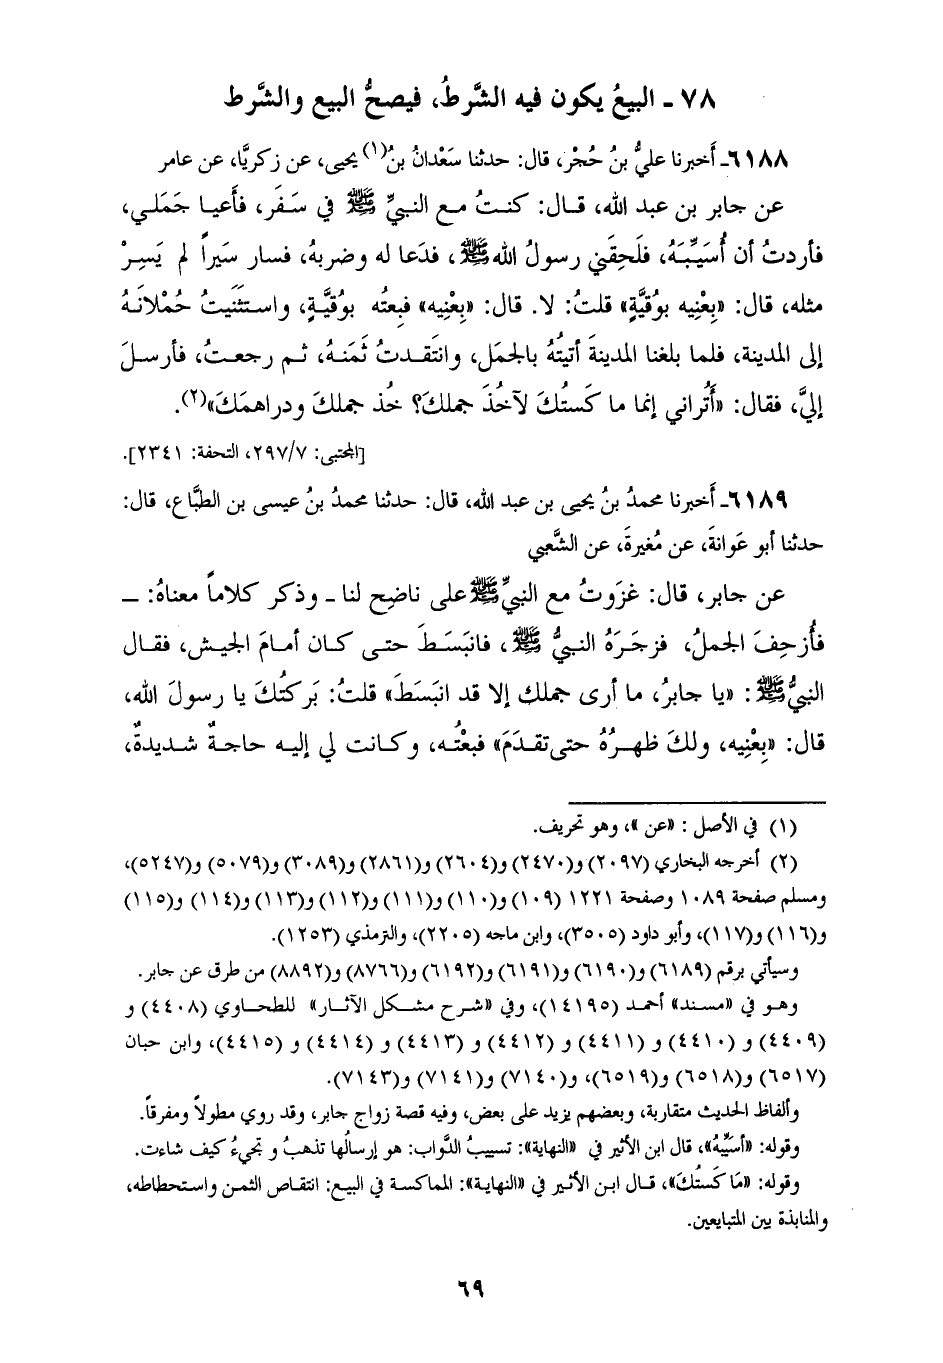 ٧٨ ـ البيعُ يكون فيه الشَّرطُ، فيصحُّ البيع والشَّرط
٦١٨٨ـ أَخبرنا عليُّ بنُ حُجْر، قال: حدثنا سَعْدانُ بنُ(١) يحيى، عن زكريَّا، عن عامر
عن جابر بن عبد الله، قـال: كنـتُ مـع النـبيِّ ﷺ في سَـفَر، فأَعيـا جَمَلـي،
فأردتُ أن أُسَيِّبَهُ، فلَحِقَني رسولُ الله ﷺ، فدَعا له وضربهُ، فسار سَيراً لم يَسِـرْ
مثله، قال: «بِعْنِيه بوُقيَّةٍ» قلتُ: لا. قال: «بِعْنِيه» فبِعتُه بوُقيَّـةٍ، واسـتثنَيتُ حُمْلانَـهُ
إلى المدينة، فلما بلغنا المدينةَ أتيتُهُ بالجمَل، وانتَقـدتُ ثَمَنـهُ، ثـم رجعـتُ، فأرسـلَ
إليَّ، فقال: «أَتُراني إنما ما كَستُكَ لآخُذَ جملكَ؟ خُذ جملكَ ودراهمَكَ»(٢).
[المجتبى: ٢٩٧/٧، التحفة: ٢٣٤١].
٦١٨٩ـ أَخبرنا محمدُ بنُ يحيى بن عبد الله، قال: حدثنا محمدُ بنُ عيسى بن الطبَّاع، قال:
حدثنا أبو عَوانةَ، عن مُغيرةَ، عن الشَّعبي
عن جابر، قال: غزَوتُ مع النبيِّ ﷺ على ناضِح لنا ـ وذكر كلاماً معناهُ: ـ
فأُزحِفَ الجملُ، فزجَرَهُ النبيُّ ﷺ، فانبَسَـطَ حتـى كـان أمـامَ الجيـش، فقـال
النبيُّ ﷺ: «يا جابرُ، ما أرى جملك إلا قد انبَسَطَ» قلتُ: بَركتُكَ يا رسولَ الله،
قال: «بِعْنِيه، ولكَ ظهـرُهُ حتى تقدَمَ» فبعْتُـه، وكـانت لي إليـه حاجـةٌ شـديدةٌ،
(١) في الأصل: «عن»، وهو تحريف.
(٢) أخرجه البخاري (٢٠٩٧) و(٢٤٧٠) و(٢٦٠٤) و(٢٨٦١) و(٣٠٨٩) و(٥٠٧٩) و(٥٢٤٧)،
ومسلم صفحة ١٠٨٩ وصفحة ١٢٢١ (١٠٩) و(١١٠) و(١١١) و(١١٢) و(١١٣) و(١١٤) و(١١٥)
و(١١٦) و(١١٧)، وأبو داود (٣٥٠٥)، وابن ماجه (٢٢٠٥)، والترمذي (١٢٥٣).
وسيأتي برقم (٦١٨٩) و(٦١٩٠) و(٦١٩١) و(٦١٩٢) و(٨٧٦٦) و(٨٨٩٢) من طرق عن جابر.
وهـو في «مسـند» أحمـد (١٤١٩٥)، وفي «شـرح مشـكل الآثـار» للطحـاوي (٤٤٠٨) و
(٤٤٠٩) و (٤٤١٠) و (٤٤١١) و (٤٤١٢) و (٤٤١٣) و (٤٤١٤) و (٤٤١٥)، وابن حبان
(٦٥١٧) و(٦٥١٨) و(٦٥١٩)، و(٧١٤٠) و(٧١٤١) و(٧١٤٣).
وألفاظ الحديث متقاربة، وبعضهم يزيد على بعض، وفيه قصة زواج جابر، وقد روي مطولاً ومفرقاً.
وقوله: «أُسَيِّبَهُ»، قال ابن الأثير في «النهاية»: تسييبُ الدَّواب: هو إرسالُها تذهبُ و تجيءُ كيف شاءت.
وقوله: «مَا كَسْتُكَ»، قـال ابـن الأثـير في «النهايـة»: المماكسـة في البيـع: انتقـاص الثمـن واستحطاطه،
والمنابذة بين المتبايعين.
٦٩